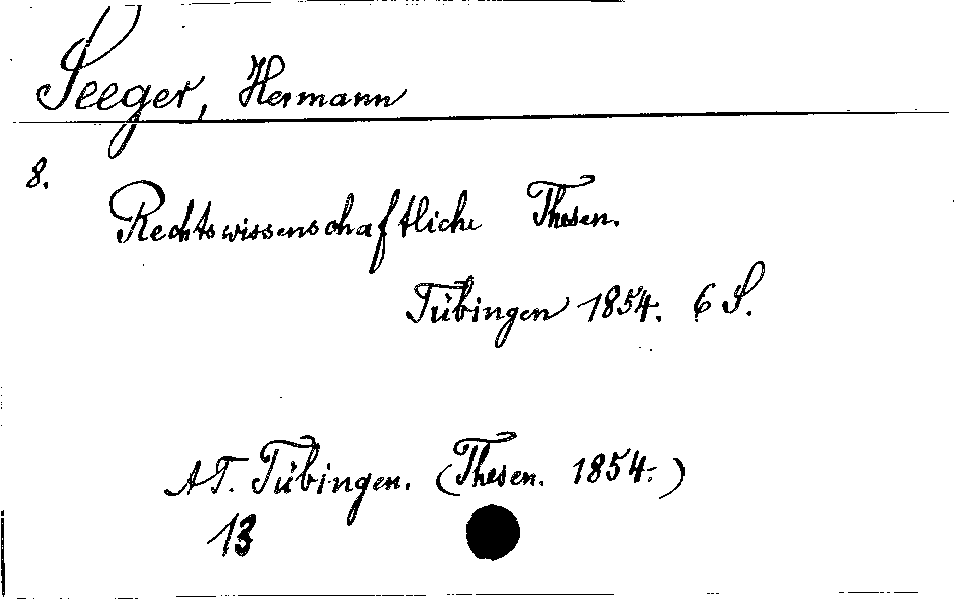 Seeger, Hermann
8.
Rechtswissenschaftliche Thesen.
Tübingen 1854. 6 S.
AT. Tübingen. (Thesen. 1854.)
13